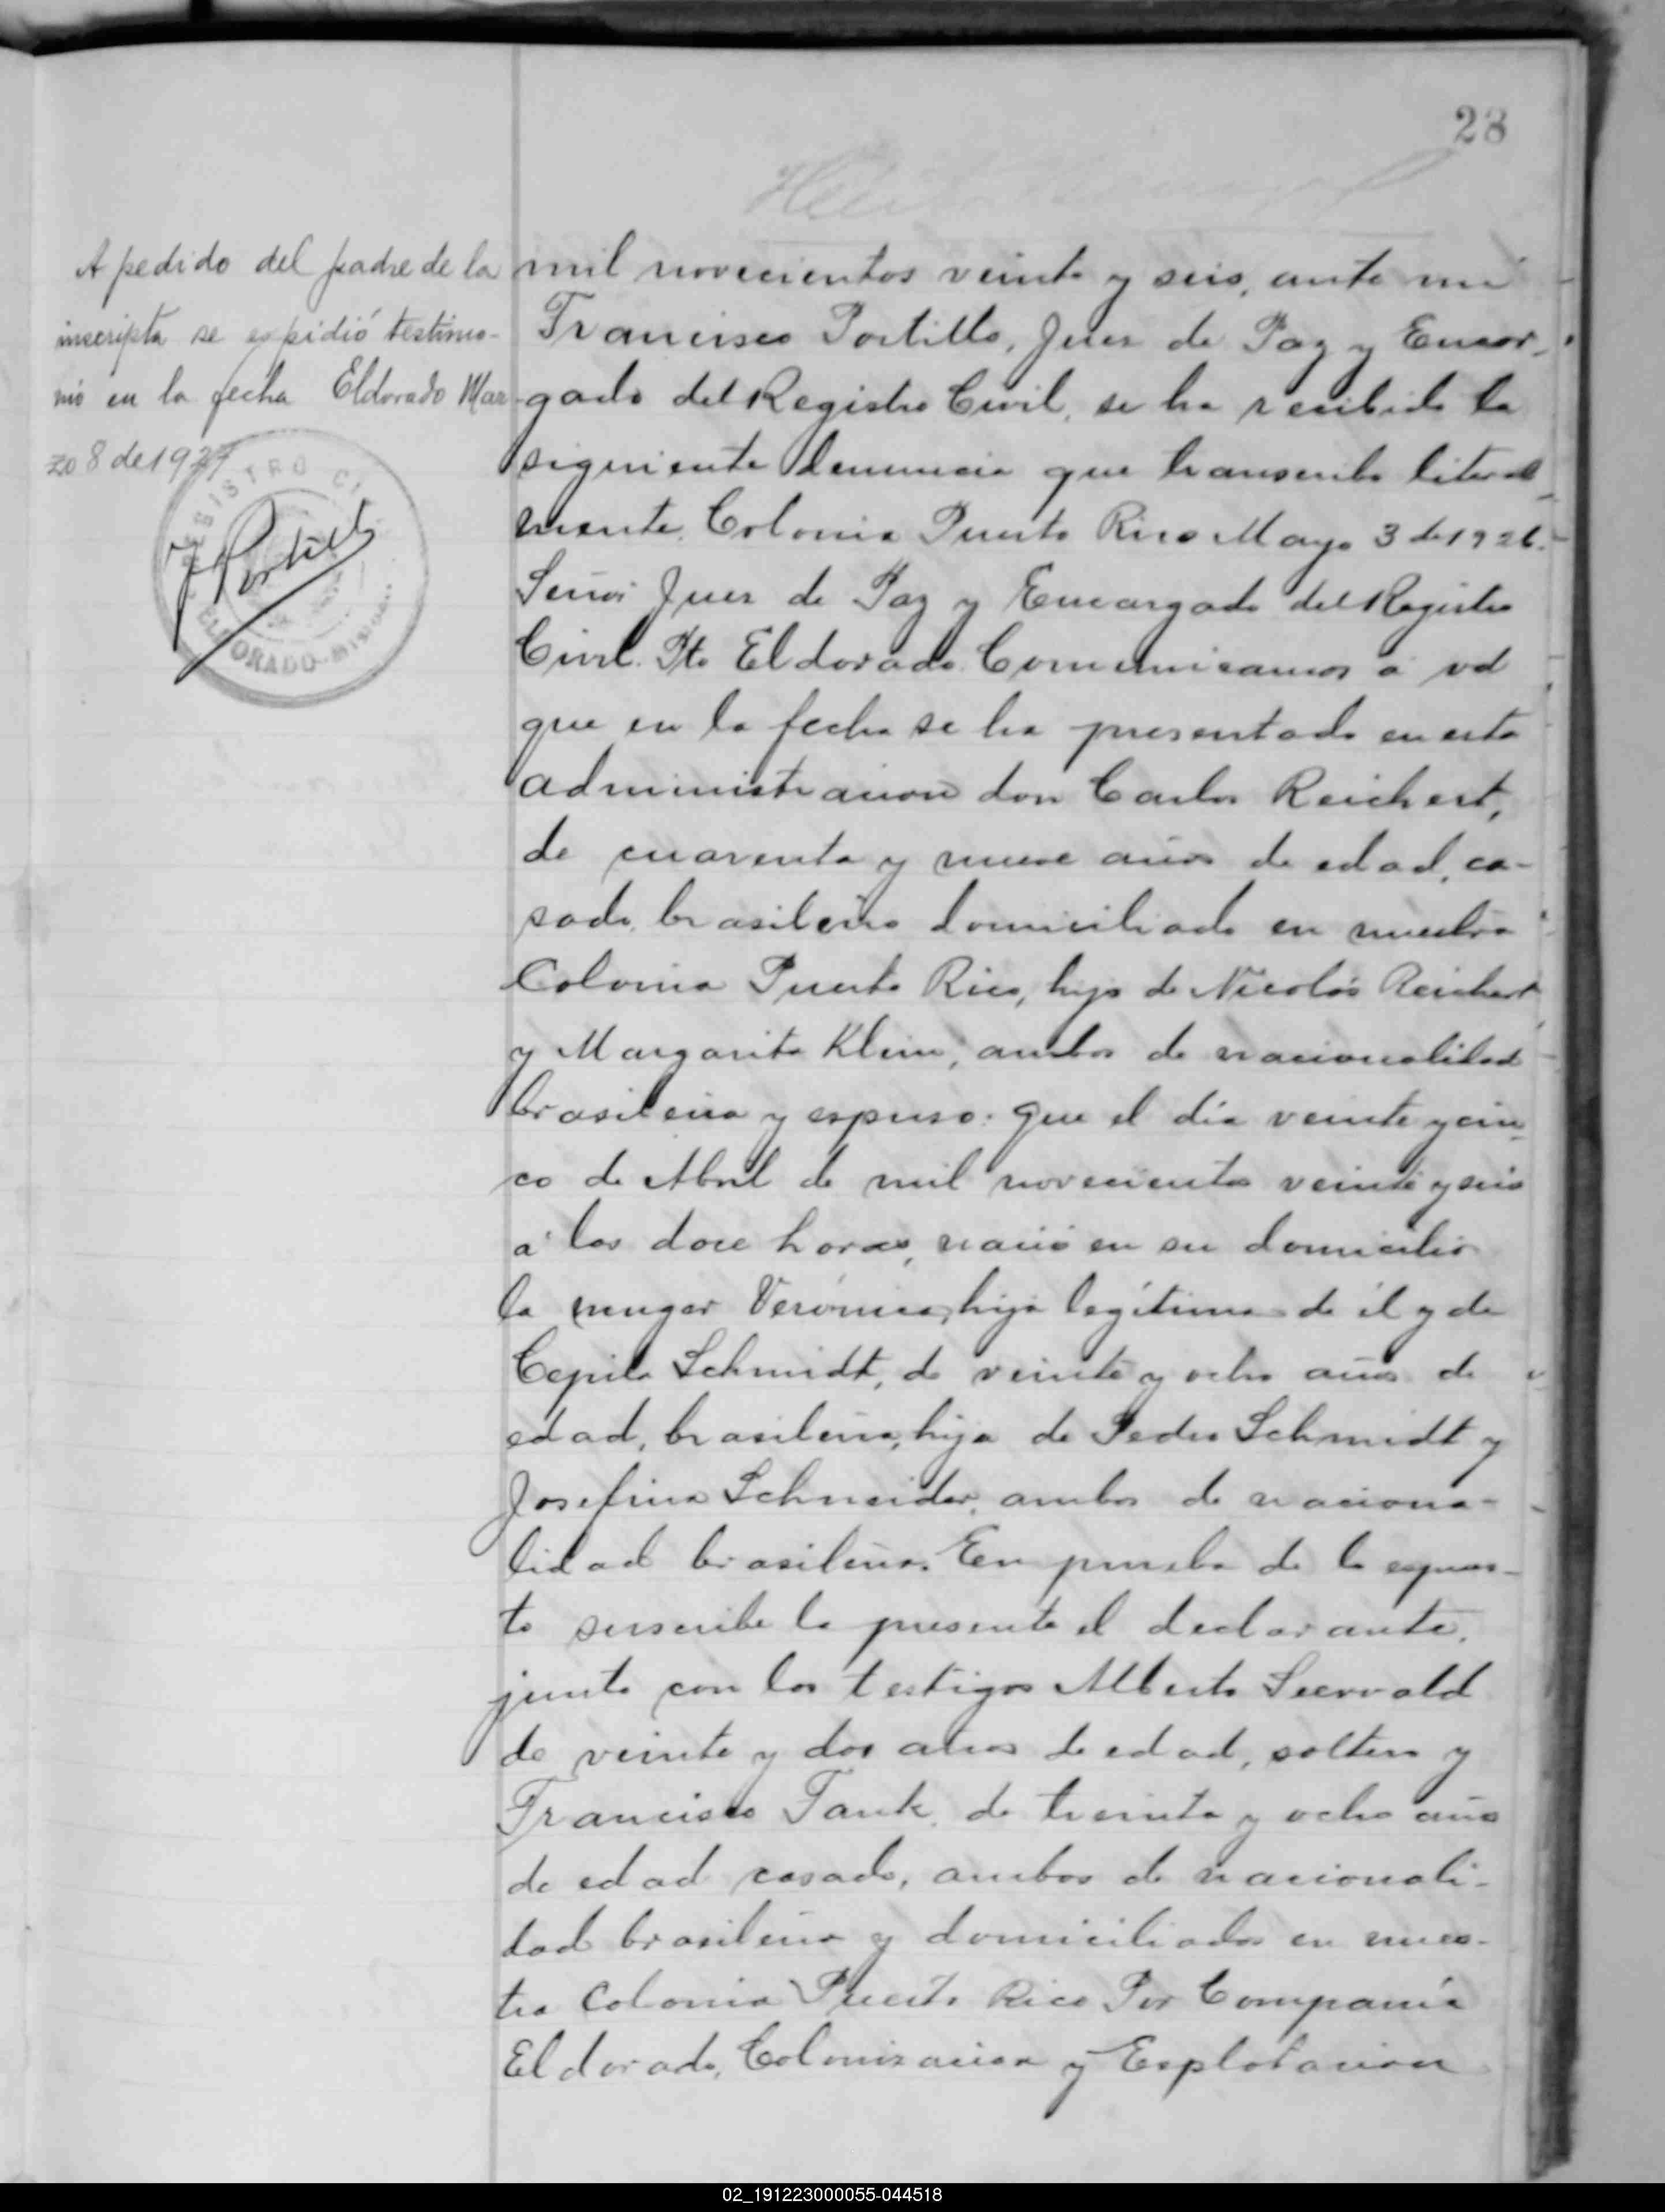 28
A pedido del padre de la
inscripta se espidió testimo-
nio en la fecha Eldorado Mar-
zo 8 de 1927
REGISTRO CI
ELDORADO-MISIONES
F Portillo
mil novecientos veinte y seis, ante mi
Francisco Portillo, Juez de Paz y Encar-
gado del Registro Civil, se ha recibido la
siguiente denuncia que transcribo literal-
mente. Colonia Puerto Rico Mayo 3 de 1926.
Señor Juez de Paz y Encargado del Registro
Civil. Pto Eldorado. Comunicamos a vd
que en la fecha se ha presentado en esta
administracion don Carlos Reichert,
de cuarenta y nueve años de edad, ca-
sado, brasileño domiciliado en nuestra
Colonia Puerto Rico, hijo de Nicolás Reichert
y Margarita Klein, ambos de nacionalidad
brasileña y espuso: que el día veinte y cin-
co de Abril de mil novecientos veinte y seis
a las doce horas, nació en su domicilio
la muger Verónica, hija legítima de él y de
Cepila Schmidt, de veinte y ocho años de
edad, brasileña, hija de Pedro Schmidt y
Josefina Schneider, ambos de naciona-
lidad brasileña. En prueba de lo espues-
to suscribe la presente el declarante,
junto con los testigos Alberto Seewald
de veinte y dos años de edad, soltero y
Francisco Tank, de treinta y ocho años
de edad casado, ambos de nacionali-
dad brasileña y domiciliados en nues-
tra Colonia Puerto Rico Por Compañía
Eldorado, Colonizacion y Esplotacion
02_191223000055-044518